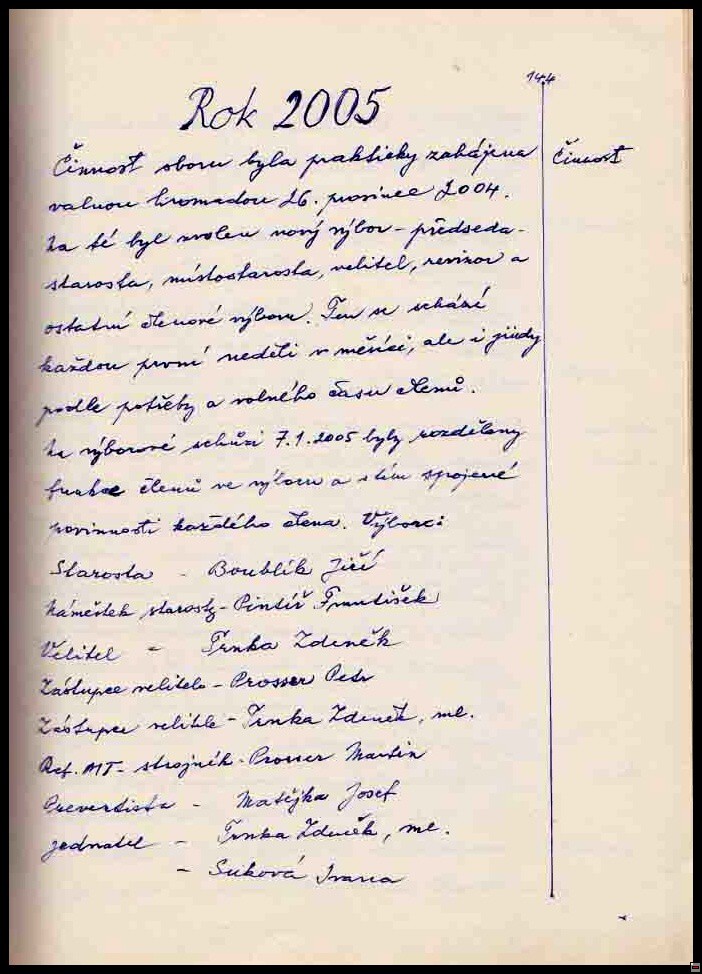 144
Rok 2005
Činnost sboru byla prakticky zahájena
Činnost
valnou hromadou 26. prosince 2004.
Na té byl zvolen nový výbor - předseda -
starosta, místostarosta, velitel, revizor a
ostatní členové výboru. Ten se schází
každou první neděli v měsíci, ale i jindy
podle potřeby a volného času členů.
Na výborové schůzi 7.1.2005 byly rozděleny
funkce členů ve výboru a s tím spojené
povinnosti každého člena. Výbor:
Starosta - Boublík Jiří
Náměstek starosty - Pintíř František
Velitel - Trnka Zdeněk
Zástupce velitele - Prosser Petr
Zástupce velitele - Trnka Zdeněk, ml.
Ref. MT - strojník - Prosser Martin
Preventista - Matějka Josef
Jednatel - Trnka Zdeněk, ml.
- Suková Ivana